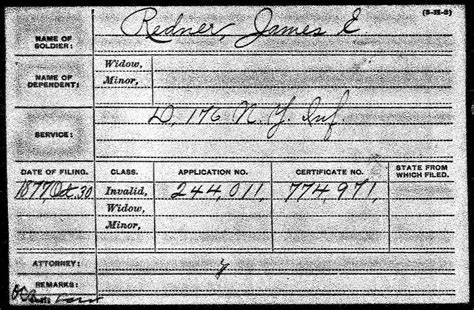 (3-35-3)
NAME OF SOLDIER: Redner, James E
NAME OF DEPENDENT: Widow,
Minor,
SERVICE: D, 176 N.Y. Inf.
DATE OF FILING. CLASS. APPLICATION NO. CERTIFICATE NO. STATE FROM WHICH FILED.
1877, Oct. 30 Invalid, 244,011, 774,971,
Widow,
Minor,
ATTORNEY: y
REMARKS: